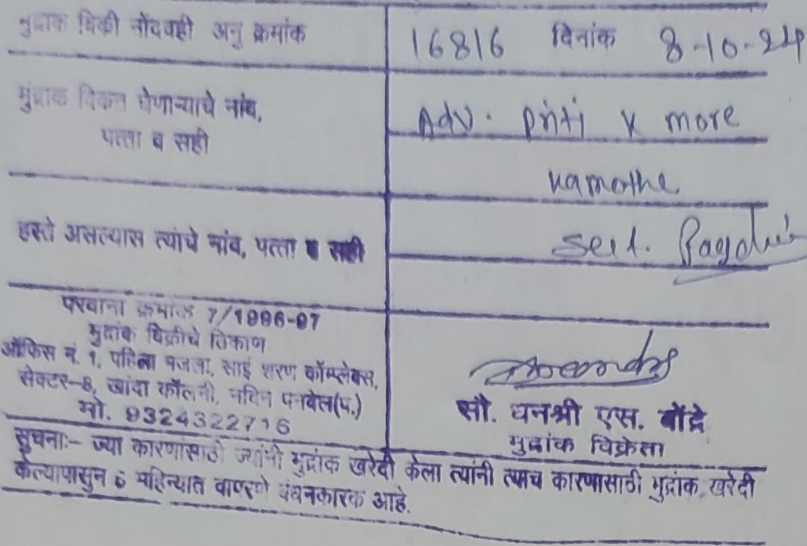 मुद्रांक विक्री नोंदवही अनु क्रमांक 16816 दिनांक 8-10-24
मुद्रांक विकत घेणाऱ्याचे नांव, Adv. Priti K more
पत्ता व सही Kamothe
हस्ते असल्यास त्यांचे नांव, पत्ता व सही Self.
परवाना क्रमांक 7/1996-97
मुद्रांक विक्रीचे ठिकाण
ऑफिस नं. 1, पहिला मजला, साई शरण कॉम्प्लेक्स,
सेक्टर-8, खांदा कॉलनी, नविन पनवेल(प.)
मो. 9324322716
सौ. धनश्री एस. बोंद्रे
मुद्रांक विक्रेता
सुचना:- ज्या कारणांसाठी ज्यांनी मुद्रांक खरेदी केला त्यांनी त्याच कारणासाठी मुद्रांक खरेदी
केल्यापासुन 6 महिन्यात वापरणे बंधनकारक आहे.